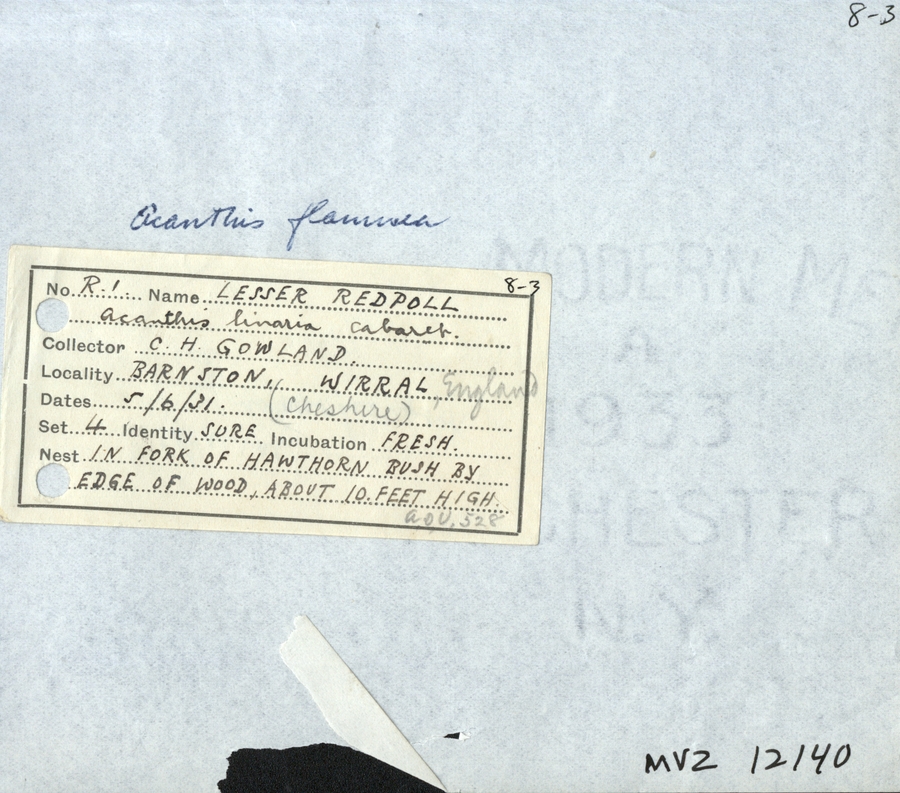 8-3
Acanthis flammea
8-3
No. R.1. Name LESSER REDPOLL
Acanthis linaria cabaret.
Collector C. H. GOWLAND.
Locality BARNSTON, WIRRAL, England
Dates 5/6/31. (Cheshire)
Set 4 Identity SURE Incubation FRESH.
Nest IN FORK OF HAWTHORN BUSH BY
EDGE OF WOOD, ABOUT 10 FEET HIGH.
AOU. 528
MODERN M
A
1933
CHESTER
N.Y.
MVZ 12140